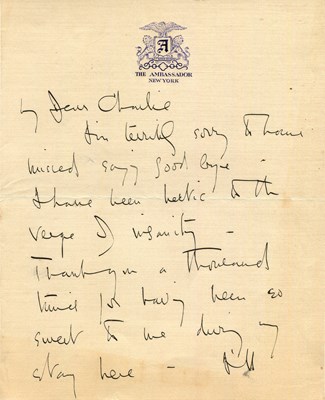 A
THE AMBASSADOR
NEW YORK
My Dear Charlie
I'm terribly sorry to have
missed saying goodbye -
I have been hectic to the
verge of insanity -
Thank you a thousand
times for having been so
sweet to me during my
stay here -